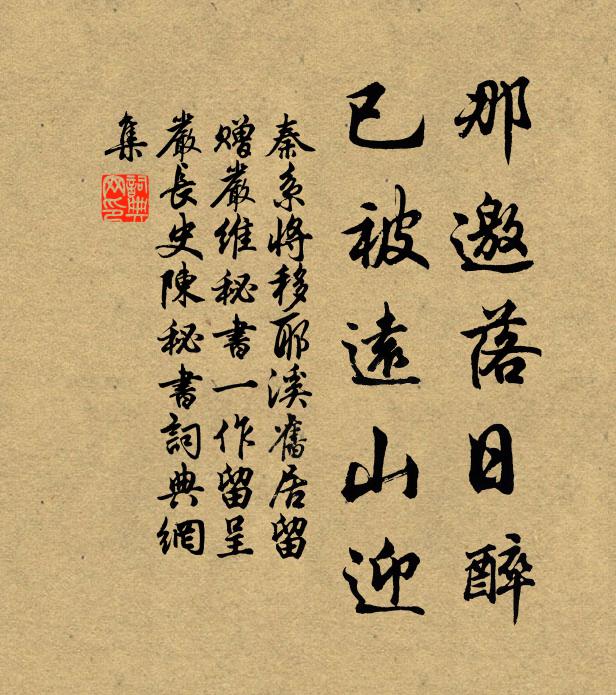 那邀落日醉
已被遠山迎
秦系將移耶溪舊居留
贈嚴維秘書一作留呈
嚴長史陳秘書詞典網
集
詞典
网印